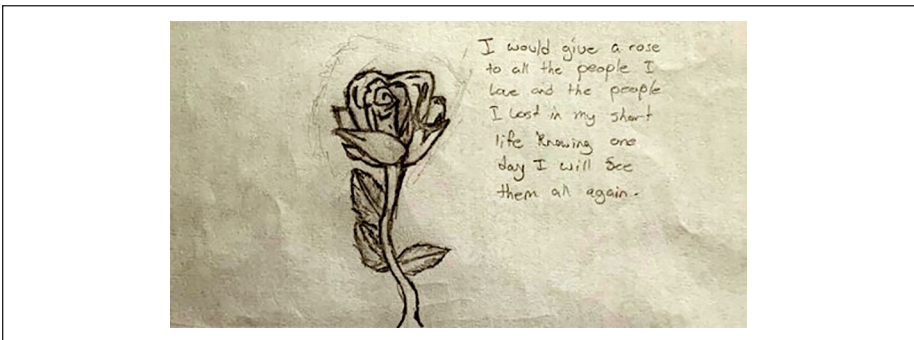 I would give a rose
to all the people I
love and the people
I lost in my short
life knowing one
day I will see
them all again.